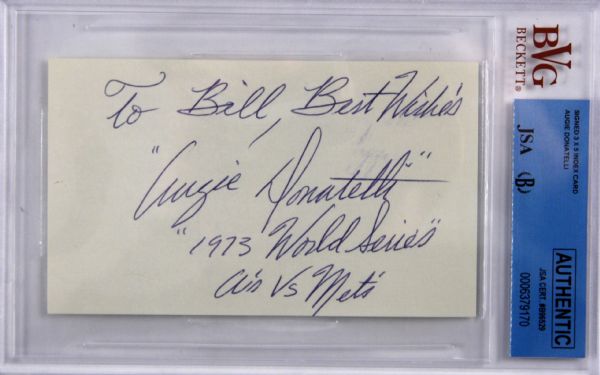 To Bill, Best Wishes
"Augie Donatelli"
"1973 World Series"
A's Vs Mets
BVG
BECKETT®
SIGNED 3 X 5 INDEX CARD
AUGIE DONATELLI
JSA (B)
AUTHENTIC
JSA CERT. #B96539
0006379170